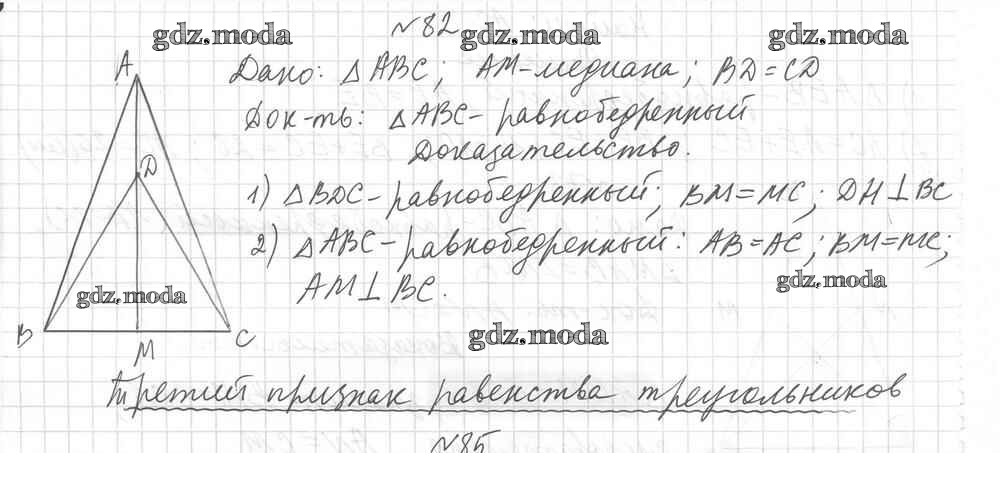 №82
gdz.moda gdz.moda gdz.moda
A
Дано: △ABC; AM-медиана; BD=CD
Док-ть: △ABC- равнобедренный
Доказательство.
D
1) △BDC-равнобедренный; BM=MC; DH⊥BC
2) △ABC-равнобедренный: AB=AC; BM=MC;
gdz.moda
AM⊥BC.
gdz.moda
B C
gdz.moda
M
Третий признак равенства треугольников
№85